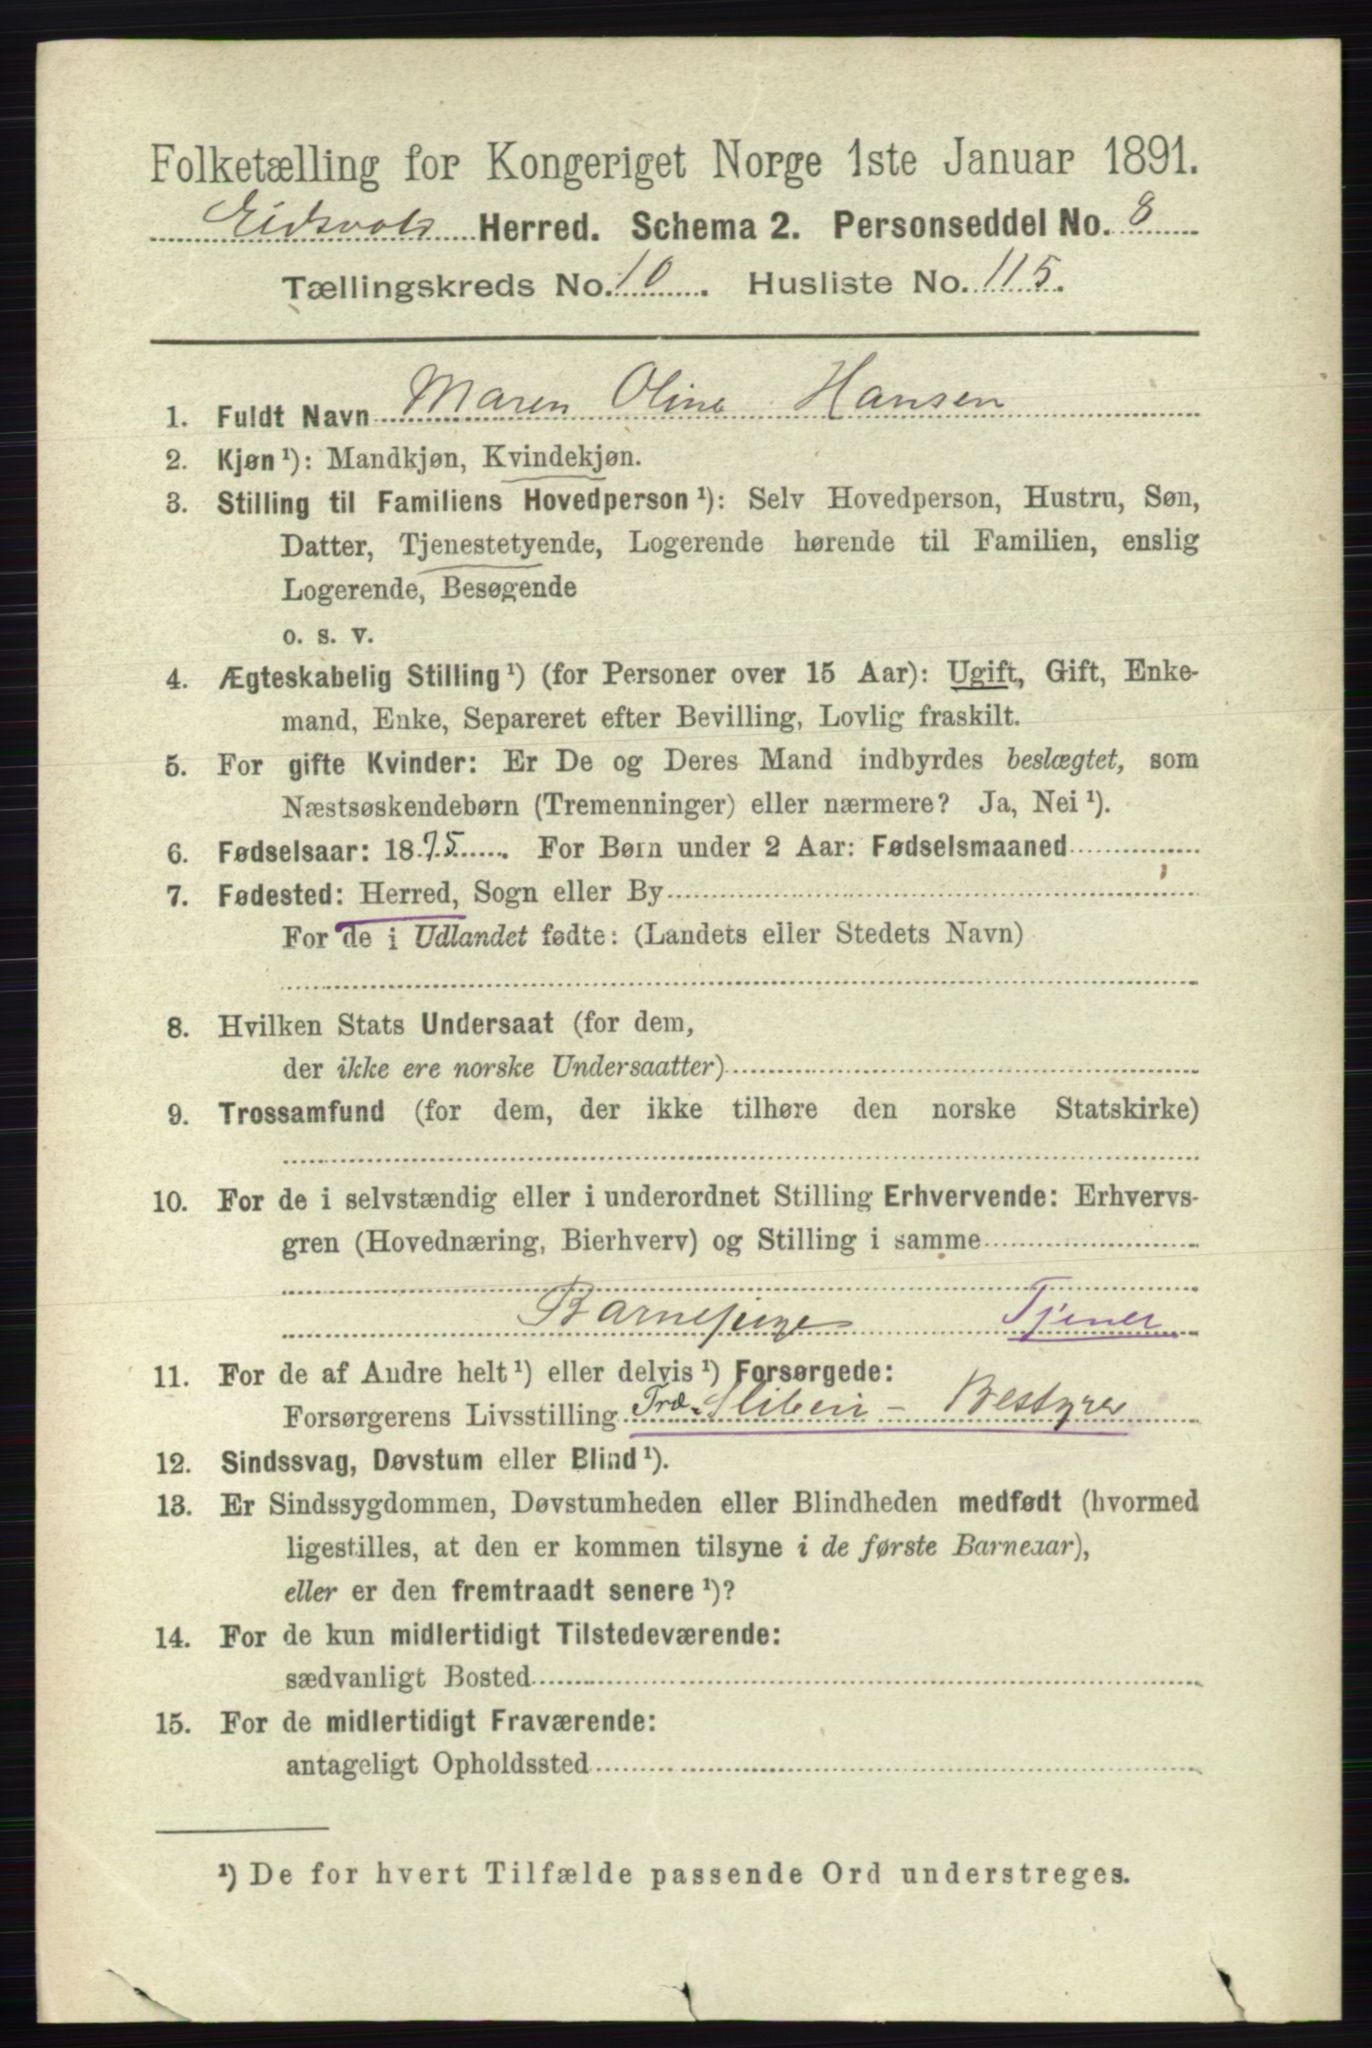 Folketælling for Kongeriget Norge 1ste Januar 1891.
Eidsvold Herred. Schema 2. Personseddel No. 8
Tællingskreds No. 10. Husliste No. 115.
1. Fuldt Navn Maren Oline Hansen
2. Kjøn ¹): Mandkjøn, Kvindekjøn.
3. Stilling til Familiens Hovedperson ¹): Selv Hovedperson, Hustru, Søn,
Datter, Tjenestetyende, Logerende hørende til Familien, enslig
Logerende, Besøgende
o. s. v.
4. Ægteskabelig Stilling ¹) (for Personer over 15 Aar): Ugift, Gift, Enke-
mand, Enke, Separeret efter Bevilling, Lovlig fraskilt.
5. For gifte Kvinder: Er De og Deres Mand indbyrdes beslægtet, som
Næstsøskendebørn (Tremenninger) eller nærmere? Ja, Nei ¹).
6. Fødselsaar: 1875. For Børn under 2 Aar: Fødselsmaaned
7. Fødested: Herred, Sogn eller By
For de i Udlandet fødte: (Landets eller Stedets Navn)
8. Hvilken Stats Undersaat (for dem,
der ikke ere norske Undersaatter)
9. Trossamfund (for dem, der ikke tilhøre den norske Statskirke)
10. For de i selvstændig eller i underordnet Stilling Erhvervende: Erhvervs-
gren (Hovednæring, Bierhverv) og Stilling i samme
Barnepige Tjener
11. For de af Andre helt ¹) eller delvis ¹) Forsørgede:
Forsørgerens Livsstilling Træ-Sliberi - Bestyrer
12. Sindssvag, Døvstum eller Blind ¹).
13. Er Sindssygdommen, Døvstumheden eller Blindheden medfødt (hvormed
ligestilles, at den er kommen tilsyne i de første Barneaar),
eller er den fremtraadt senere ¹)?
14. For de kun midlertidigt Tilstedeværende:
sædvanligt Bosted
15. For de midlertidigt Fraværende:
antageligt Opholdssted
¹) De for hvert Tilfælde passende Ord understreges.